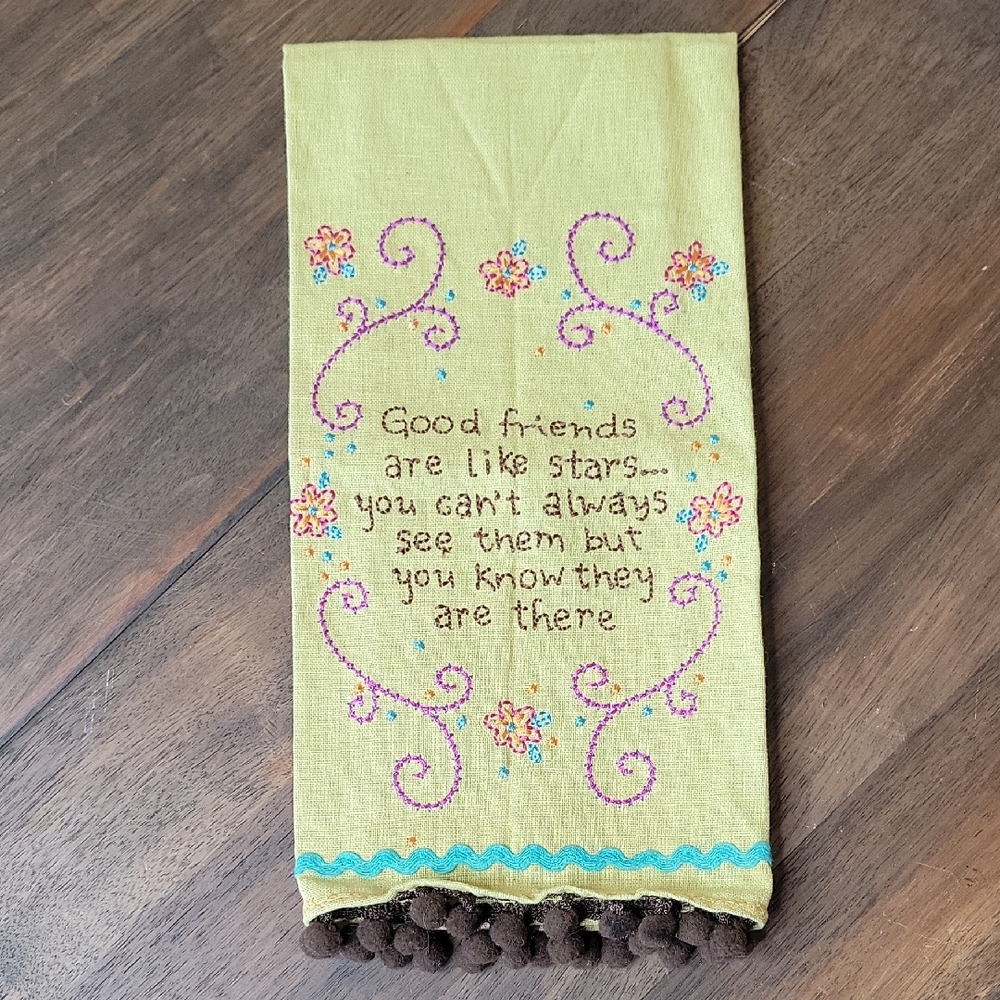 Good friends
are like stars...
you can't always
see them but
you know they
are there